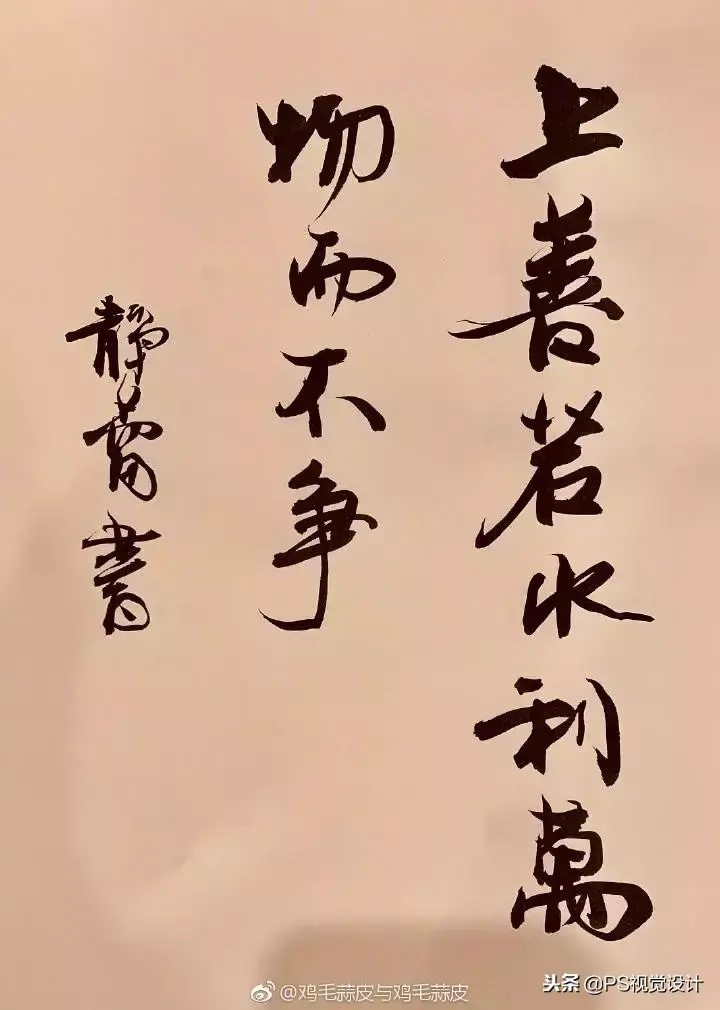 上善若水利萬
物而不争
静蕾書
@鸡毛蒜皮与鸡毛蒜皮
头条 @PS视觉设计